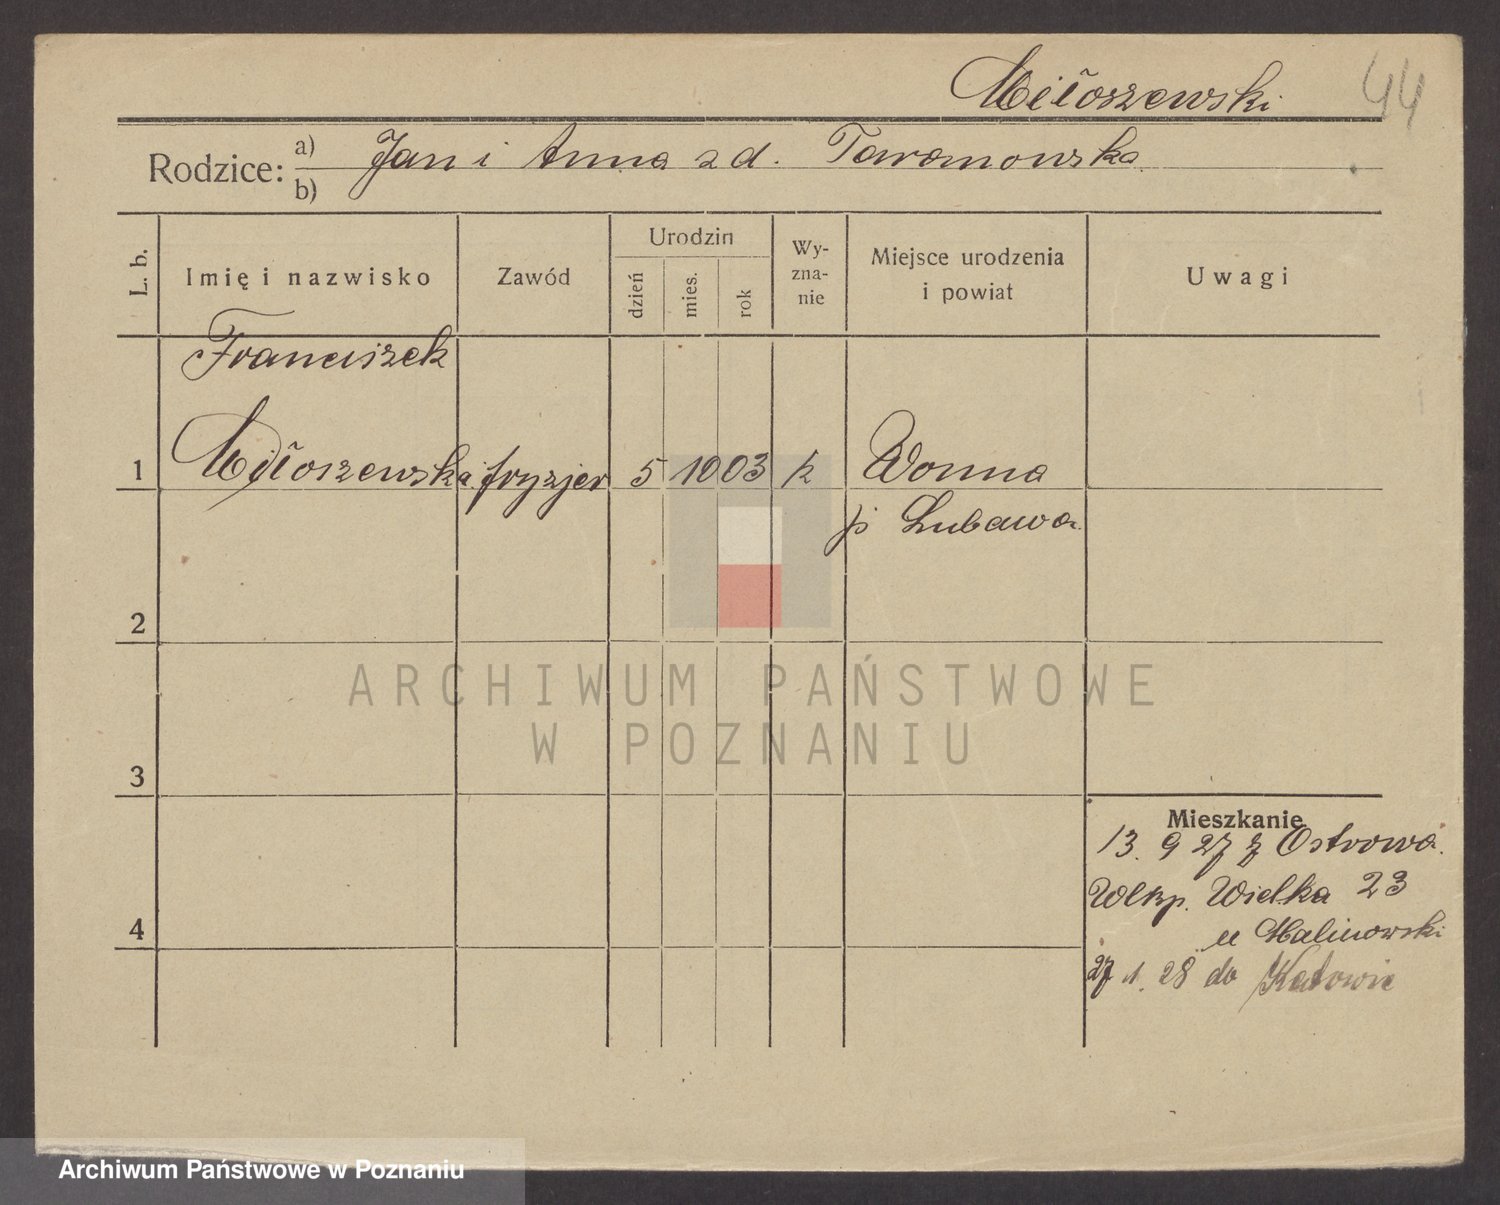 Miłoszewski 44
Rodzice: a) Jan i Anna z d. Taranowska
b)
L. b. Imię i nazwisko Zawód Urodzin dzień mies. rok Wy-zna-nie Miejsce urodzenia i powiat Uwagi
Franciszek
1 Miłoszewski fryzjer 5 10 03 k Wonna
p Lubawa
2
ARCHIWUM PAŃSTWOWE
W POZNANIU
3
Mieszkanie
13. 9 27 z Ostrowa
Wlkp. Wielka 23
4 u Malinowski
27 1. 28 do Katowic
Archiwum Państwowe w Poznaniu